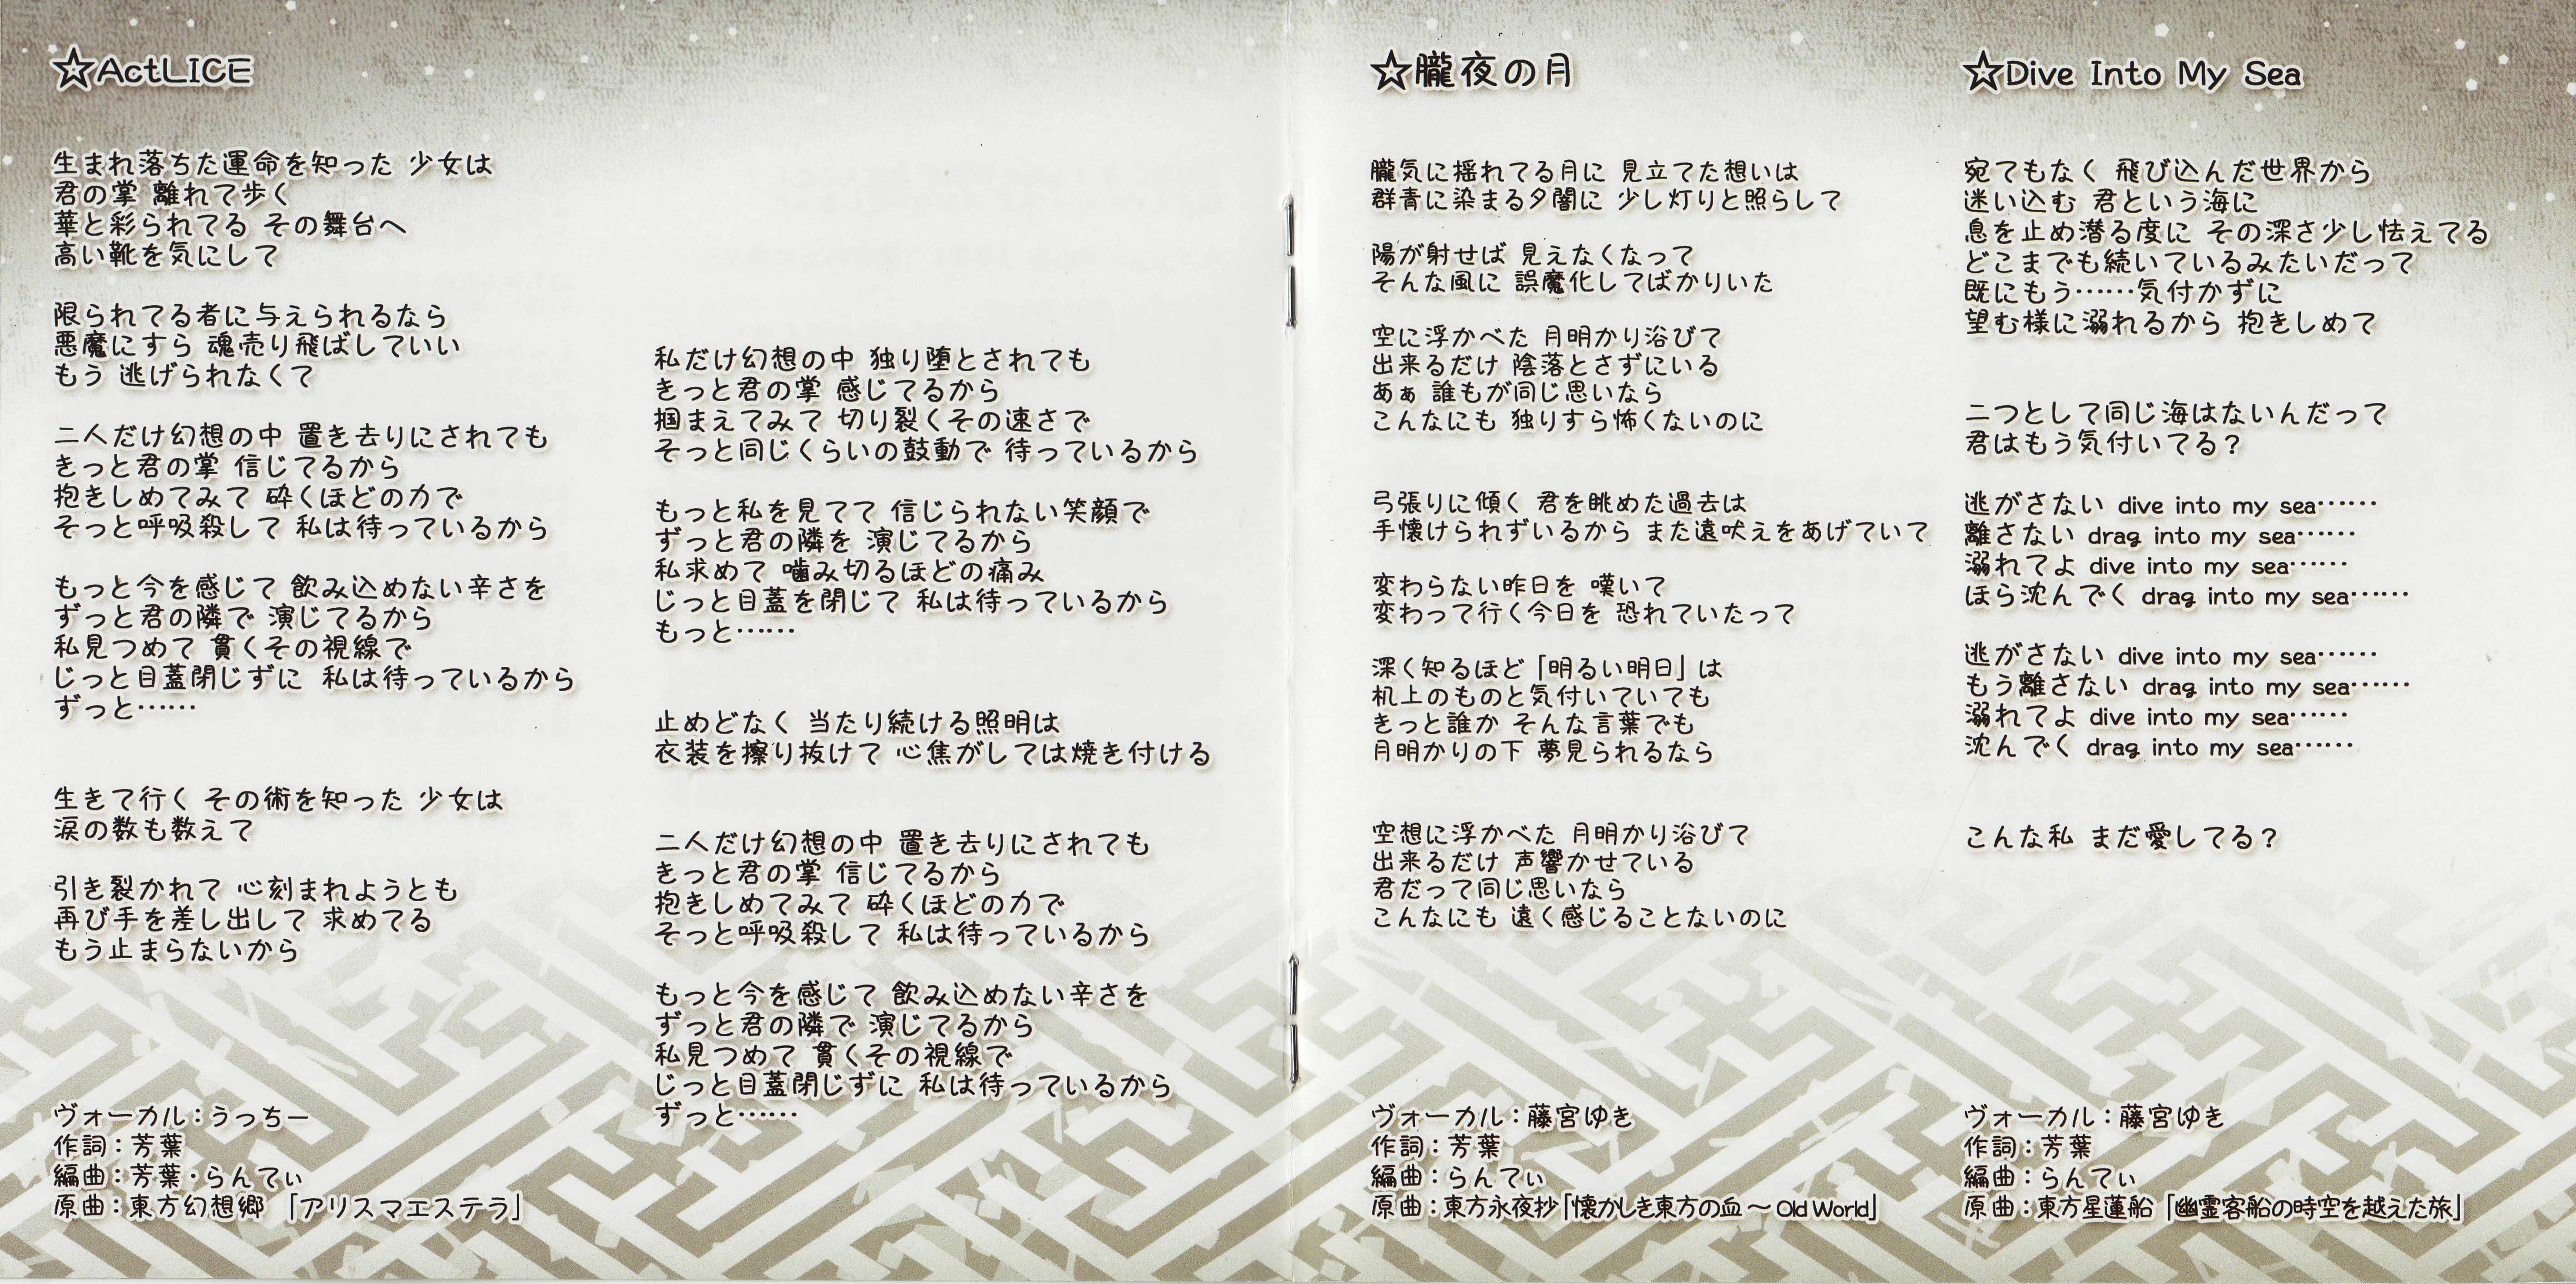 ☆ActLICE
生まれ落ちた運命を知った 少女は
君の掌 離れて歩く
華と彩られてる その舞台へ
高い靴を気にして
限られてる者に与えられるなら
悪魔にすら 魂売り飛ばしていい
もう 逃げられなくて
二人だけ幻想の中 置き去りにされても
きっと君の掌 信じてるから
抱きしめてみて 砕くほどの力で
そっと呼吸殺して 私は待っているから
もっと今を感じて 飲み込めない辛さを
ずっと君の隣で 演じてるから
私見つめて 貫くその視線で
じっと目蓋閉じずに 私は待っているから
ずっと……
生きて行く その術を知った 少女は
涙の数も数えて
引き裂かれて 心刻まれようとも
再び手を差し出して 求めてる
もう止まらないから
ヴォーカル：うっちー
作詞：芳葉
編曲：芳葉・らんてぃ
原曲：東方幻想郷 「アリスマエステラ」
私だけ幻想の中 独り堕とされても
きっと君の掌 感じてるから
掴まえてみて 切り裂くその速さで
そっと同じくらいの鼓動で 待っているから
もっと私を見てて 信じられない笑顔で
ずっと君の隣を 演じてるから
私求めて 噛み切るほどの痛み
じっと目蓋を閉じて 私は待っているから
もっと……
止めどなく 当たり続ける照明は
衣装を擦り抜けて 心焦がしては焼き付ける
二人だけ幻想の中 置き去りにされても
きっと君の掌 信じてるから
抱きしめてみて 砕くほどの力で
そっと呼吸殺して 私は待っているから
もっと今を感じて 飲み込めない辛さを
ずっと君の隣で 演じてるから
私見つめて 貫くその視線で
じっと目蓋閉じずに 私は待っているから
ずっと……
☆朧夜の月
朧気に揺れてる月に 見立てた想いは
群青に染まる夕闇に 少し灯りと照らして
陽が射せば 見えなくなって
そんな風に 誤魔化してばかりいた
空に浮かべた 月明かり浴びて
出来るだけ 陰落とさずにいる
あぁ 誰もが同じ思いなら
こんなにも 独りすら怖くないのに
弓張りに傾く 君を眺めた過去は
手懐けられずいるから また遠吠えをあげていて
変わらない昨日を 嘆いて
変わって行く今日を 恐れていたって
深く知るほど「明るい明日」は
机上のものと気付いていても
きっと誰か そんな言葉でも
月明かりの下 夢見られるなら
空想に浮かべた 月明かり浴びて
出来るだけ 声響かせている
君だって同じ思いなら
こんなにも 遠く感じることないのに
ヴォーカル：藤宮ゆき
作詞：芳葉
編曲：らんてぃ
原曲：東方永夜抄「懐かしき東方の血 ～ Old World」
☆Dive Into My Sea
宛てもなく 飛び込んだ世界から
迷い込む 君という海に
息を止め潜る度に その深さ少し怯えてる
どこまでも続いているみたいだって
既にもう……気付かずに
望む様に溺れるから 抱きしめて
二つとして同じ海はないんだって
君はもう気付いてる？
逃がさない dive into my sea……
離さない drag into my sea……
溺れてよ dive into my sea……
ほら沈んでく drag into my sea……
逃がさない dive into my sea……
もう離さない drag into my sea……
溺れてよ dive into my sea……
沈んでく drag into my sea……
こんな私 まだ愛してる？
ヴォーカル：藤宮ゆき
作詞：芳葉
編曲：らんてぃ
原曲：東方星蓮船 「幽霊客船の時空を越えた旅」